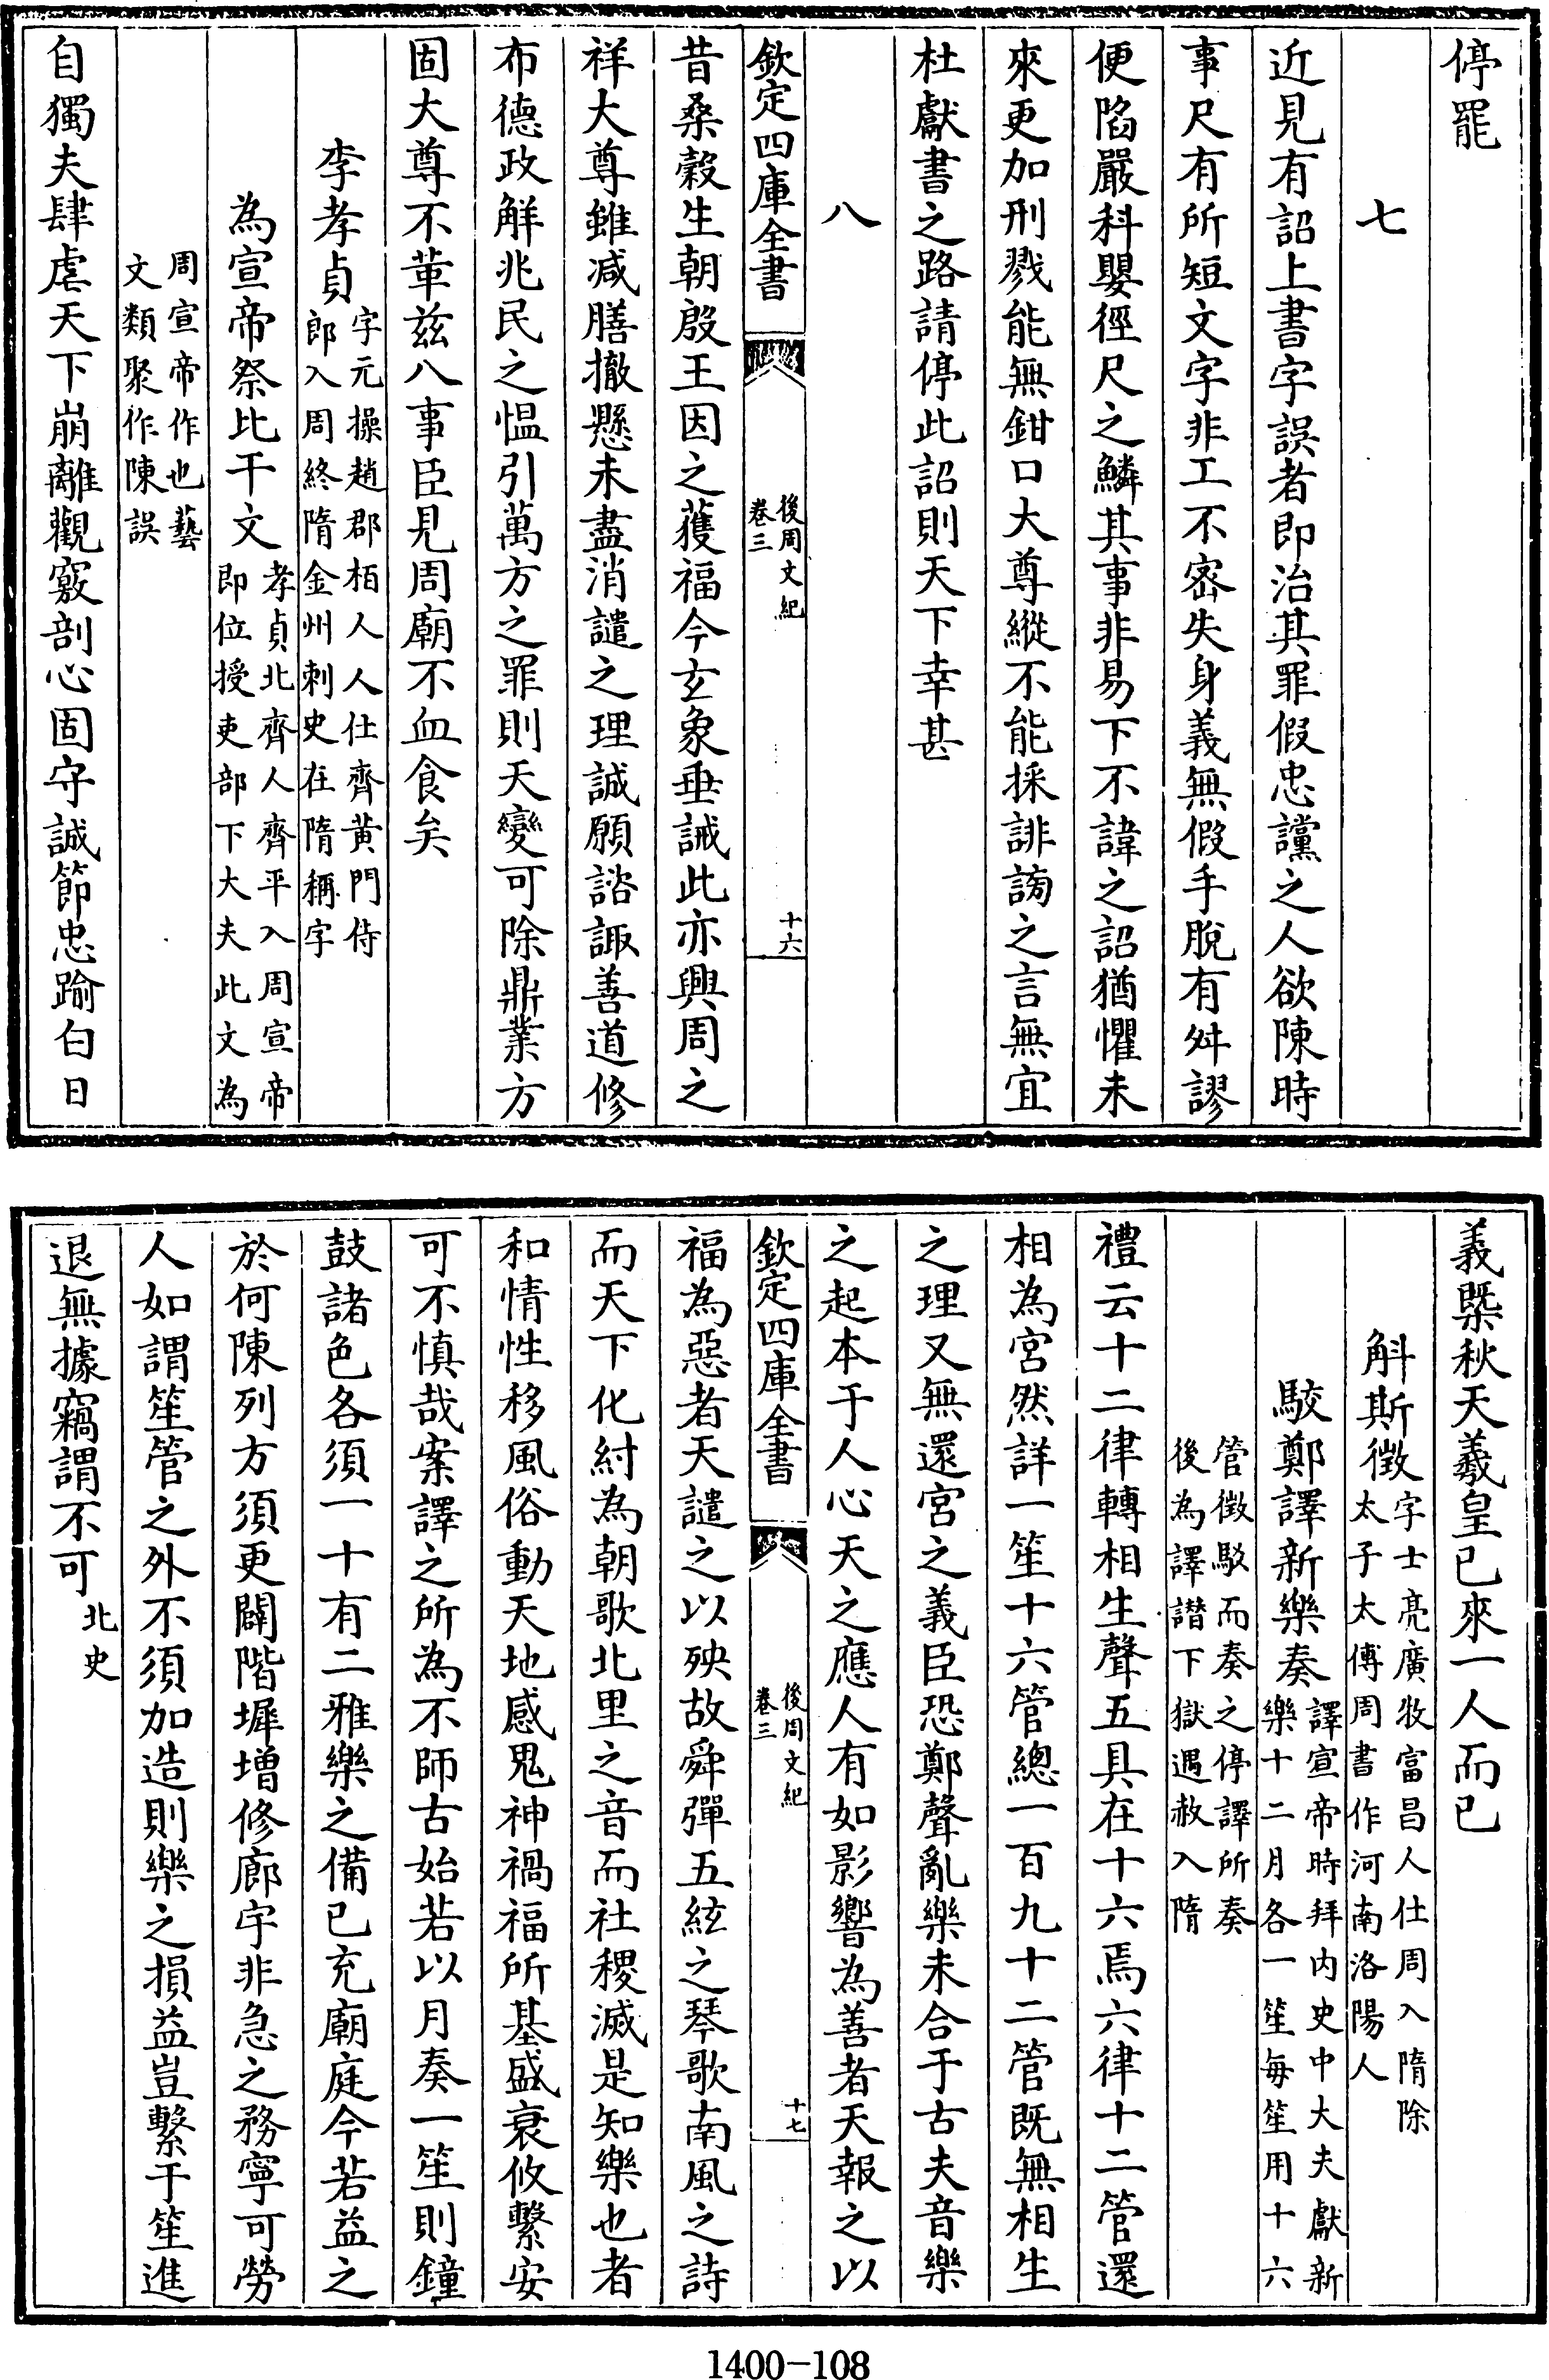 停罷
七
近見有詔上書字誤者即治其罪假忠讜之人欲陳時
事尺有所短文字非工不宻失身義無假手脫有舛謬
便陷嚴科嬰徑尺之鱗其事非易下不諱之詔猶懼未
來更加刑戮能無鉗口大尊縱不能採誹謗之言無宜
杜獻書之路請停此詔則天下幸甚
八
欽定四庫全書
後周文紀
卷三
十六
昔桑穀生朝殷王因之獲福今玄象垂誡此亦興周之
祥大尊雖减膳撤懸未盡消譴之理誠願諮諏善道修
布德政解兆民之愠引萬方之罪則天變可除鼎業方
固大尊不革兹八事臣見周廟不血食矣
李孝貞字元操趙郡栢人人仕齊黄門侍
郎入周終隋金州刺史在隋稱字
為宣帝祭比干文孝貞北齊人齊平入周宣帝
即位授吏部下大夫此文為
周宣帝作也藝
文類聚作陳誤
自獨夫肆虐天下崩離觀竅剖心固守誠節忠踰白日
義槩秋天羲皇已來一人而已
斛斯徴字士亮廣牧富昌人仕周入隋除
太子太傅周書作河南洛陽人
駮鄭譯新樂奏譯宣帝時拜内史中大夫獻新
樂十二月各一笙每笙用十六
管徴駁而奏之停譯所奏
後為譯譖下獄遇赦入隋
禮云十二律轉相生聲五具在十六焉六律十二管還
相為宮然詳一笙十六管總一百九十二管既無相生
之理又無還宮之義臣恐鄭聲亂樂未合于古夫音樂
之起本于人心天之應人有如影響為善者天報之以
欽定四庫全書
後周文紀
卷三
十七
福為惡者天譴之以殃故舜彈五絃之琴歌南風之詩
而天下化紂為朝歌北里之音而社稷滅是知樂也者
和情性移風俗動天地感鬼神禍福所基盛衰攸繫安
可不慎哉案譯之所為不師古始若以月奏一笙則鐘
鼓諸色各須一十有二雅樂之備已充廟庭今若益之
於何陳列方須更闢階墀增修廊宇非急之務寧可勞
人如謂笙管之外不須加造則樂之損益豈繫于笙進
退無據竊謂不可北史
1400-108